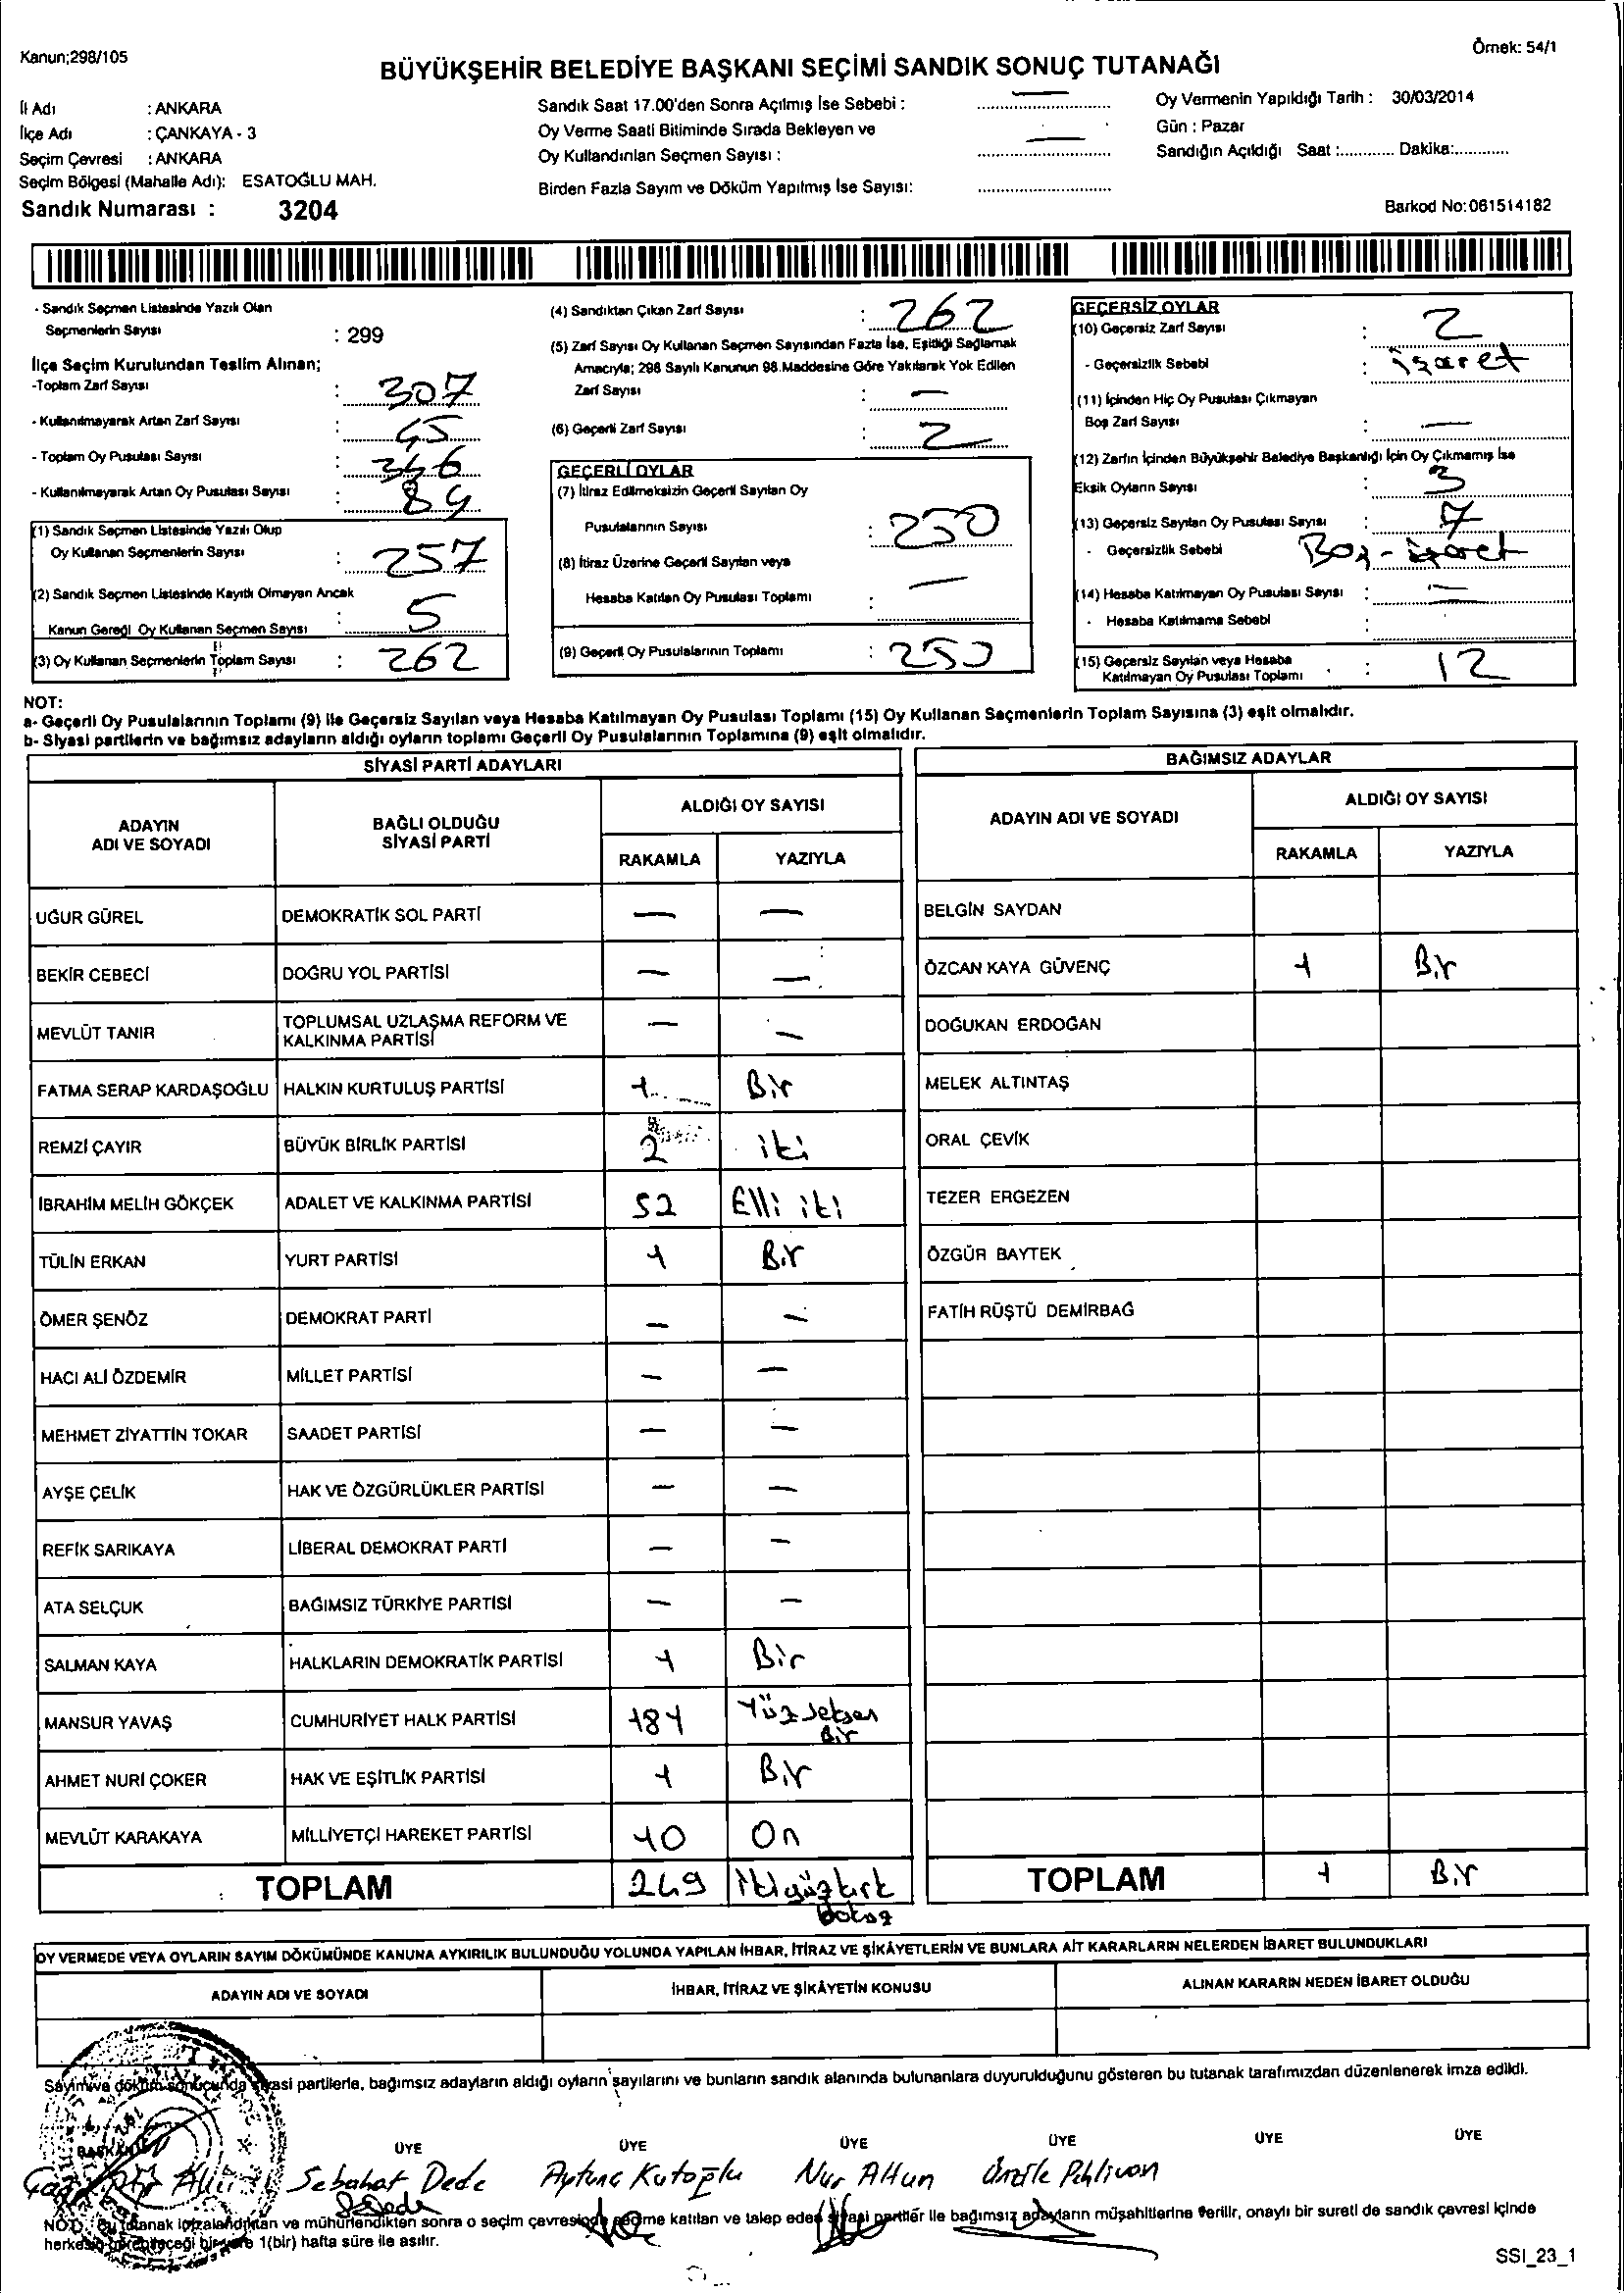 Kanun;298/105
Örnek: 54/1
BÜYÜKŞEHİR BELEDİYE BAŞKANI SEÇİMİ SANDIK SONUÇ TUTANAĞI
İl Adı : ANKARA
İlçe Adı : ÇANKAYA - 3
Seçim Çevresi : ANKARA
Seçim Bölgesi (Mahalle Adı): ESATOĞLU MAH.
Sandık Numarası : 3204
Sandık Saat 17.00'den Sonra Açılmış İse Sebebi : —
Oy Verme Saati Bitiminde Sırada Bekleyen ve
Oy Kullandırılan Seçmen Sayısı : —
Birden Fazla Sayım ve Döküm Yapılmış İse Sayısı:
Oy Vermenin Yapıldığı Tarih : 30/03/2014
Gün : Pazar
Sandığın Açıldığı Saat :............ Dakika:............
Barkod No:061514182
- Sandık Seçmen Listesinde Yazılı Olan
Seçmenlerin Sayısı : 299
İlçe Seçim Kurulundan Teslim Alınan;
-Toplam Zarf Sayısı : 307
- Kullanılmayarak Artan Zarf Sayısı : 45
- Toplam Oy Pusulası Sayısı : 346
- Kullanılmayarak Artan Oy Pusulası Sayısı : 84
(1) Sandık Seçmen Listesinde Yazılı Olup
Oy Kullanan Seçmenlerin Sayısı : 257
(2) Sandık Seçmen Listesinde Kayıtlı Olmayan Ancak
Kanun Gereği Oy Kullanan Seçmen Sayısı : 5
(3) Oy Kullanan Seçmenlerin Toplam Sayısı : 262
(4) Sandıktan Çıkan Zarf Sayısı : 262
(5) Zarf Sayısı Oy Kullanan Seçmen Sayısından Fazla İse, Eşitliği Sağlamak
Amacıyla; 298 Sayılı Kanunun 98.Maddesine Göre Yakılarak Yok Edilen
Zarf Sayısı : —
(6) Geçerli Zarf Sayısı : 2
GEÇERLİ OYLAR
(7) İtiraz Edilmeksizin Geçerli Sayılan Oy
Pusulalarının Sayısı : 250
(8) İtiraz Üzerine Geçerli Sayılan veya
Hesaba Katılan Oy Pusulası Toplamı : —
(9) Geçerli Oy Pusulalarının Toplamı : 250
GEÇERSİZ OYLAR
(10) Geçersiz Zarf Sayısı : 2
- Geçersizlik Sebebi : işaret
(11) İçinden Hiç Oy Pusulası Çıkmayan
Boş Zarf Sayısı : —
(12) Zarfın İçinden Büyükşehir Belediye Başkanlığı İçin Oy Çıkmamış İse
Eksik Oyların Sayısı : 3
(13) Geçersiz Sayılan Oy Pusulası Sayısı : 7
- Geçersizlik Sebebi Boş - işaret
(14) Hesaba Katılmayan Oy Pusulası Sayısı : —
- Hesaba Katılmama Sebebi :
(15) Geçersiz Sayılan veya Hesaba
Katılmayan Oy Pusulası Toplamı : 12
NOT:
a- Geçerli Oy Pusulalarının Toplamı (9) ile Geçersiz Sayılan veya Hesaba Katılmayan Oy Pusulası Toplamı (15) Oy Kullanan Seçmenlerin Toplam Sayısına (3) eşit olmalıdır.
b- Siyasi partilerin ve bağımsız adayların aldığı oyların toplamı Geçerli Oy Pusulalarının Toplamına (9) eşit olmalıdır.
SİYASİ PARTİ ADAYLARI
ADAYIN ADI VE SOYADI BAĞLI OLDUĞU SİYASİ PARTİ ALDIĞI OY SAYISI
RAKAMLA YAZIYLA
UĞUR GÜREL DEMOKRATİK SOL PARTİ — —
BEKİR CEBECİ DOĞRU YOL PARTİSİ — —
MEVLÜT TANIR TOPLUMSAL UZLAŞMA REFORM VE KALKINMA PARTİSİ — —
FATMA SERAP KARDAŞOĞLU HALKIN KURTULUŞ PARTİSİ 1 Bir
REMZİ ÇAYIR BÜYÜK BİRLİK PARTİSİ 2 iki
İBRAHİM MELİH GÖKÇEK ADALET VE KALKINMA PARTİSİ 52 Elli iki
TÜLİN ERKAN YURT PARTİSİ 1 Bir
ÖMER ŞENÖZ DEMOKRAT PARTİ — —
HACI ALİ ÖZDEMİR MİLLET PARTİSİ — —
MEHMET ZİYATTİN TOKAR SAADET PARTİSİ — —
AYŞE ÇELİK HAK VE ÖZGÜRLÜKLER PARTİSİ — —
REFİK SARIKAYA LİBERAL DEMOKRAT PARTİ — —
ATA SELÇUK BAĞIMSIZ TÜRKİYE PARTİSİ — —
SALMAN KAYA HALKLARIN DEMOKRATİK PARTİSİ 1 Bir
MANSUR YAVAŞ CUMHURİYET HALK PARTİSİ 181 Yüz seksen Bir
AHMET NURİ ÇOKER HAK VE EŞİTLİK PARTİSİ 1 Bir
MEVLÜT KARAKAYA MİLLİYETÇİ HAREKET PARTİSİ 10 On
TOPLAM 249 ikiyüzkırk Dokuz
BAĞIMSIZ ADAYLAR
ADAYIN ADI VE SOYADI ALDIĞI OY SAYISI
RAKAMLA YAZIYLA
BELGİN SAYDAN
ÖZCAN KAYA GÜVENÇ 1 Bir
DOĞUKAN ERDOĞAN
MELEK ALTINTAŞ
ORAL ÇEVİK
TEZER ERGEZEN
ÖZGÜR BAYTEK
FATİH RÜŞTÜ DEMİRBAĞ
TOPLAM 1 Bir
OY VERMEDE VEYA OYLARIN SAYIM DÖKÜMÜNDE KANUNA AYKIRILIK BULUNDUĞU YOLUNDA YAPILAN İHBAR, İTİRAZ VE ŞİKÂYETLERİN VE BUNLARA AİT KARARLARIN NELERDEN İBARET BULUNDUKLARI
ADAYIN ADI VE SOYADI İHBAR, İTİRAZ VE ŞİKÂYETİN KONUSU ALINAN KARARIN NEDEN İBARET OLDUĞU
Sayım ve döküm sonucunda siyasi partilerle, bağımsız adayların aldığı oyların sayılarını ve bunların sandık alanında bulunanlara duyurulduğunu gösteren bu tutanak tarafımızdan düzenlenerek imza edildi.
BAŞKAN ÜYE ÜYE ÜYE ÜYE ÜYE ÜYE
Sebahat Dede Aytunç Kutoğlu Nur Altun Pehlivan
NOT: Bu tutanak imzalandıktan ve mühürlendikten sonra o seçim çevresinde seçime katılan ve talep eden siyasi partiler ile bağımsız adayların müşahitlerine verilir, onaylı bir sureti de sandık çevresi içinde
herkesin görebileceği bir yere 1(bir) hafta süre ile asılır.
SSI_23_1